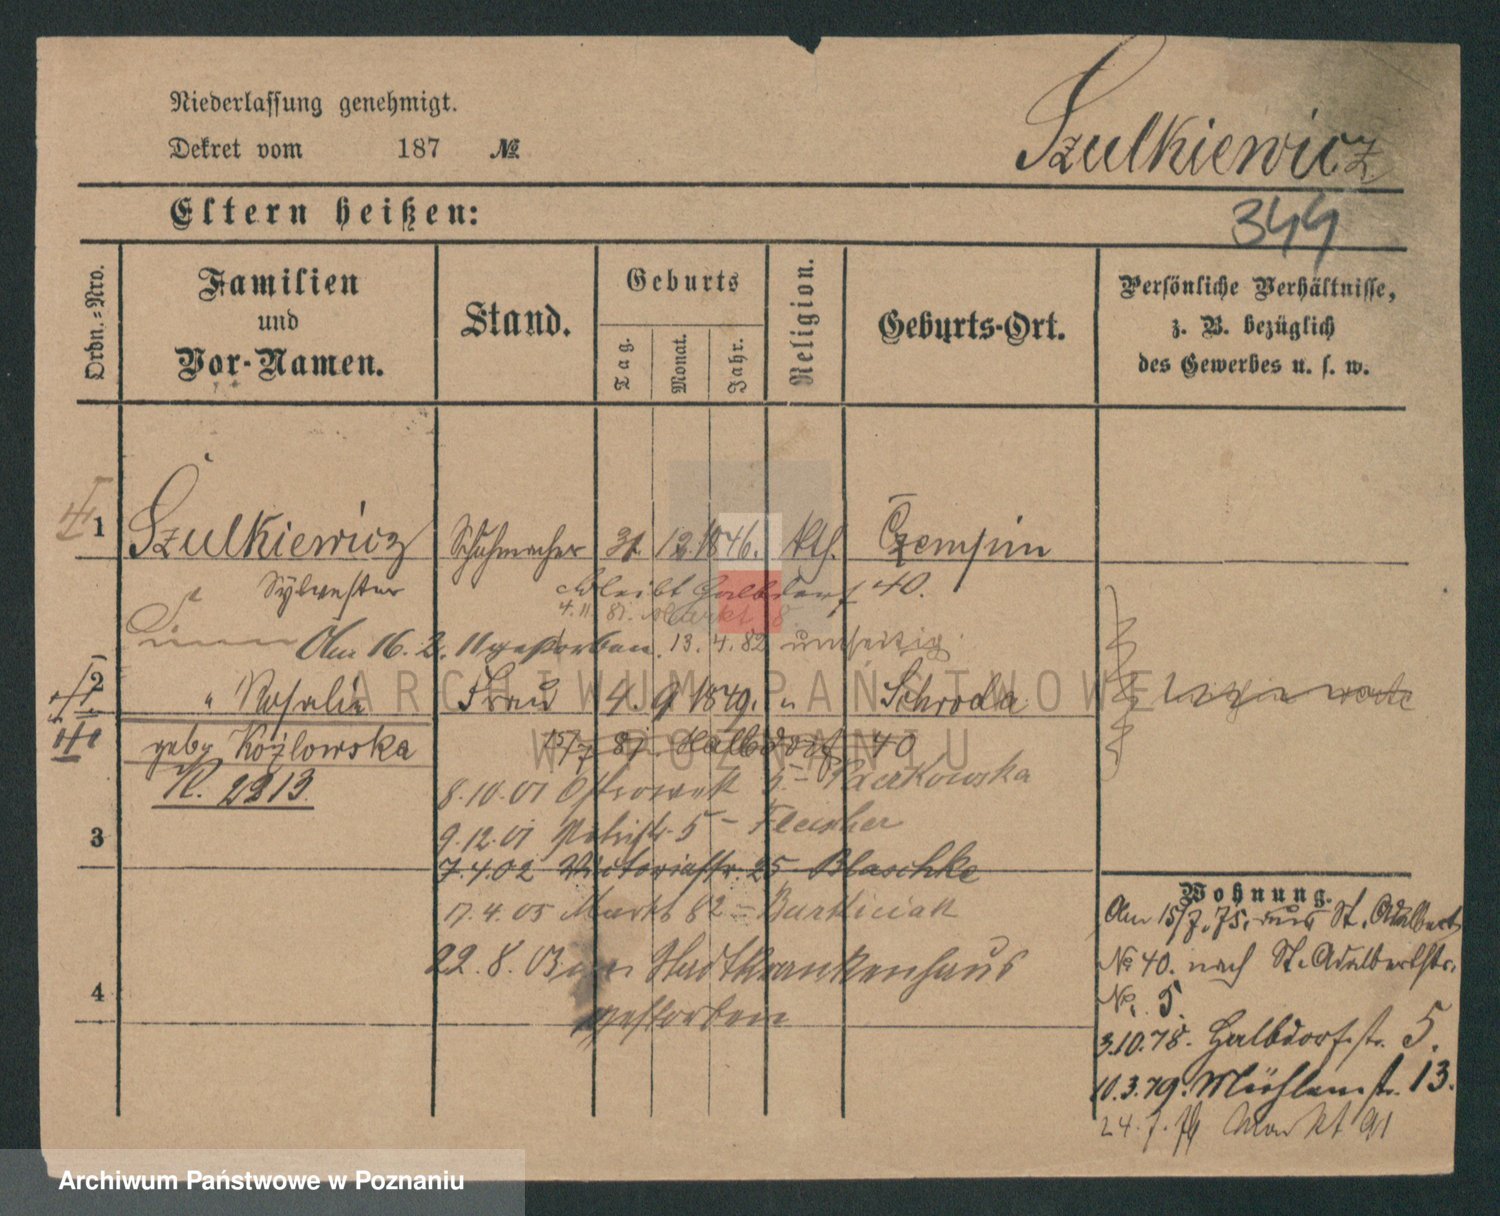 Niederlassung genehmigt.
Dekret vom 187 №
Szulkiewicz
Eltern heißen:
344
Ordn.=Nro.
Familien
und
Vor-Namen.
Stand.
Geburts
Tag.
Monat.
Jahr.
Religion.
Geburts-Ort.
Persönliche Verhältnisse,
z. B. bezüglich
des Gewerbes u. s. w.
1 Szulkiewicz Schuhmacher 31. 12. 1846. kth. Czempin
Sylvester bleibt Halbdorf 40.
4. 11. 81. Markt 8
Am 16. 2. gestorben. 13. 4. 82 umseitig
2 " Rosalie Frau 4. 9. 1849. " Schroda
geb. Kozlowska 15/7 81. Halbdorf 40
R. 2213.
8.10.01 Ostrowek Paczkowska
9.12.01 5 - Fleischer
3
7.4.02 Victoriastr. 25 Blaschke
17.4.03 Markt 82 = Bartliciak
22.8.03 im Stadtkrankenhaus
4
gestorben
Wohnung.
Am 15/7. 75. von St. Adalbert
№ 40. nach St. Adalbertstr.
No. 5.
3.10.78. Halbdorfstr. 5.
10.3.79. Mühlenstr. 13.
24. 7. 79 Markt 91
ARCHIWUM PAŃSTWOWE
W POZNANIU
Archiwum Państwowe w Poznaniu